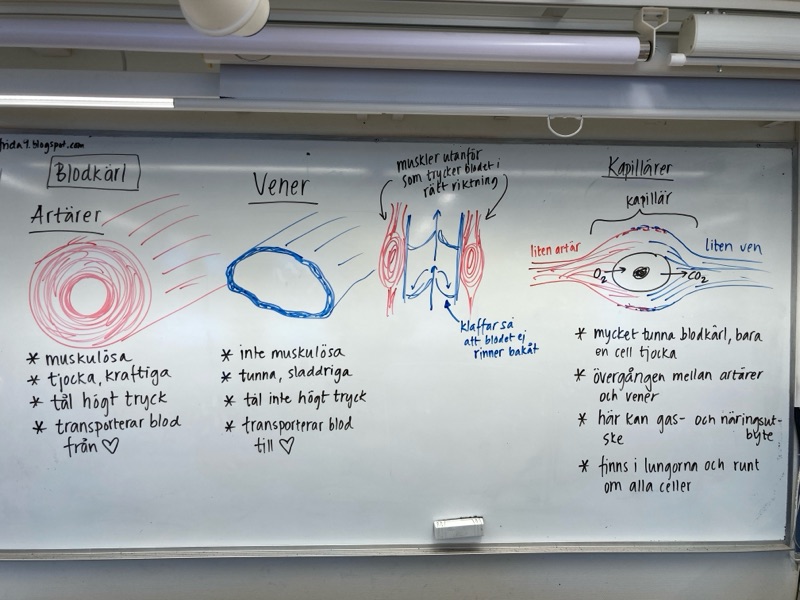 frida9.blogspot.com
Blodkärl
Artärer
* muskulösa
* tjocka, kraftiga
* tål högt tryck
* transporterar blod
från ♡
Vener
* inte muskulösa
* tunna, sladdriga
* tål inte högt tryck
* transporterar blod
till ♡
muskler utanför
som trycker blodet i
rätt riktning
klaffar så
att blodet ej
rinner bakåt
Kapillärer
kapillär
liten artär
liten ven
O₂
CO₂
* mycket tunna blodkärl, bara
en cell tjocka
* övergången mellan artärer
och vener
* här kan gas- och näringsut-
byte
ske
* finns i lungorna och runt
om alla celler